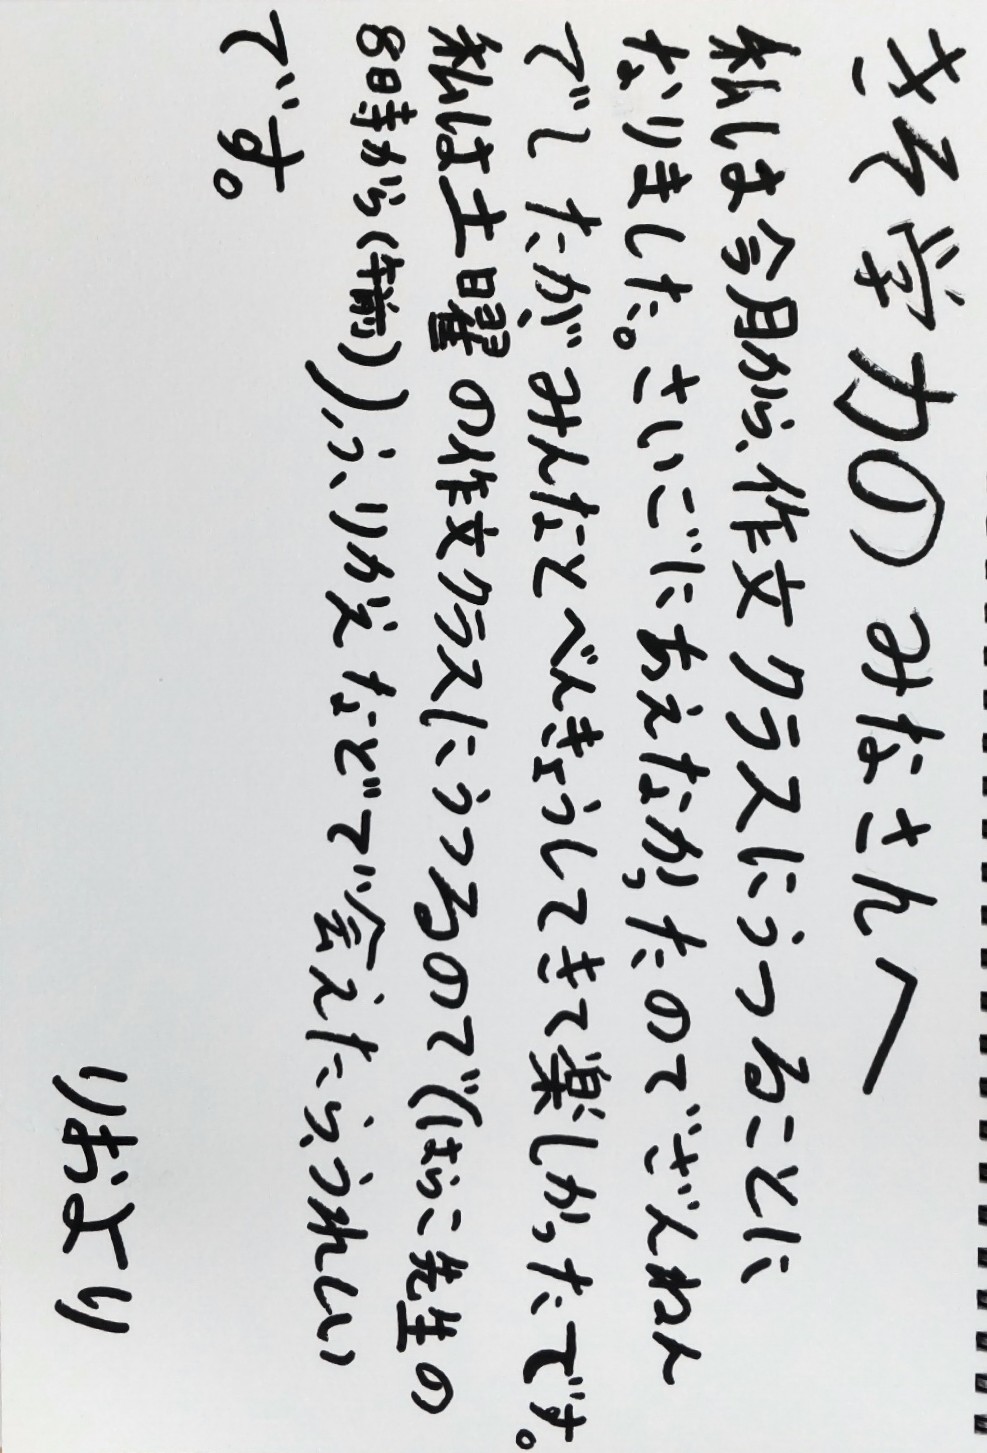 きそ学力のみなさんへ
私は今月から、作文クラスにうつることに
なりました。さいごにあえなかったのでざんねん
でしたが、みんなとべんきょうしてきて楽しかったです。
私は土曜の作文クラスにうつるので(はらこ先生の
8時から(午前))ふりかえなどで会えたら、うれしい
です。
りおより